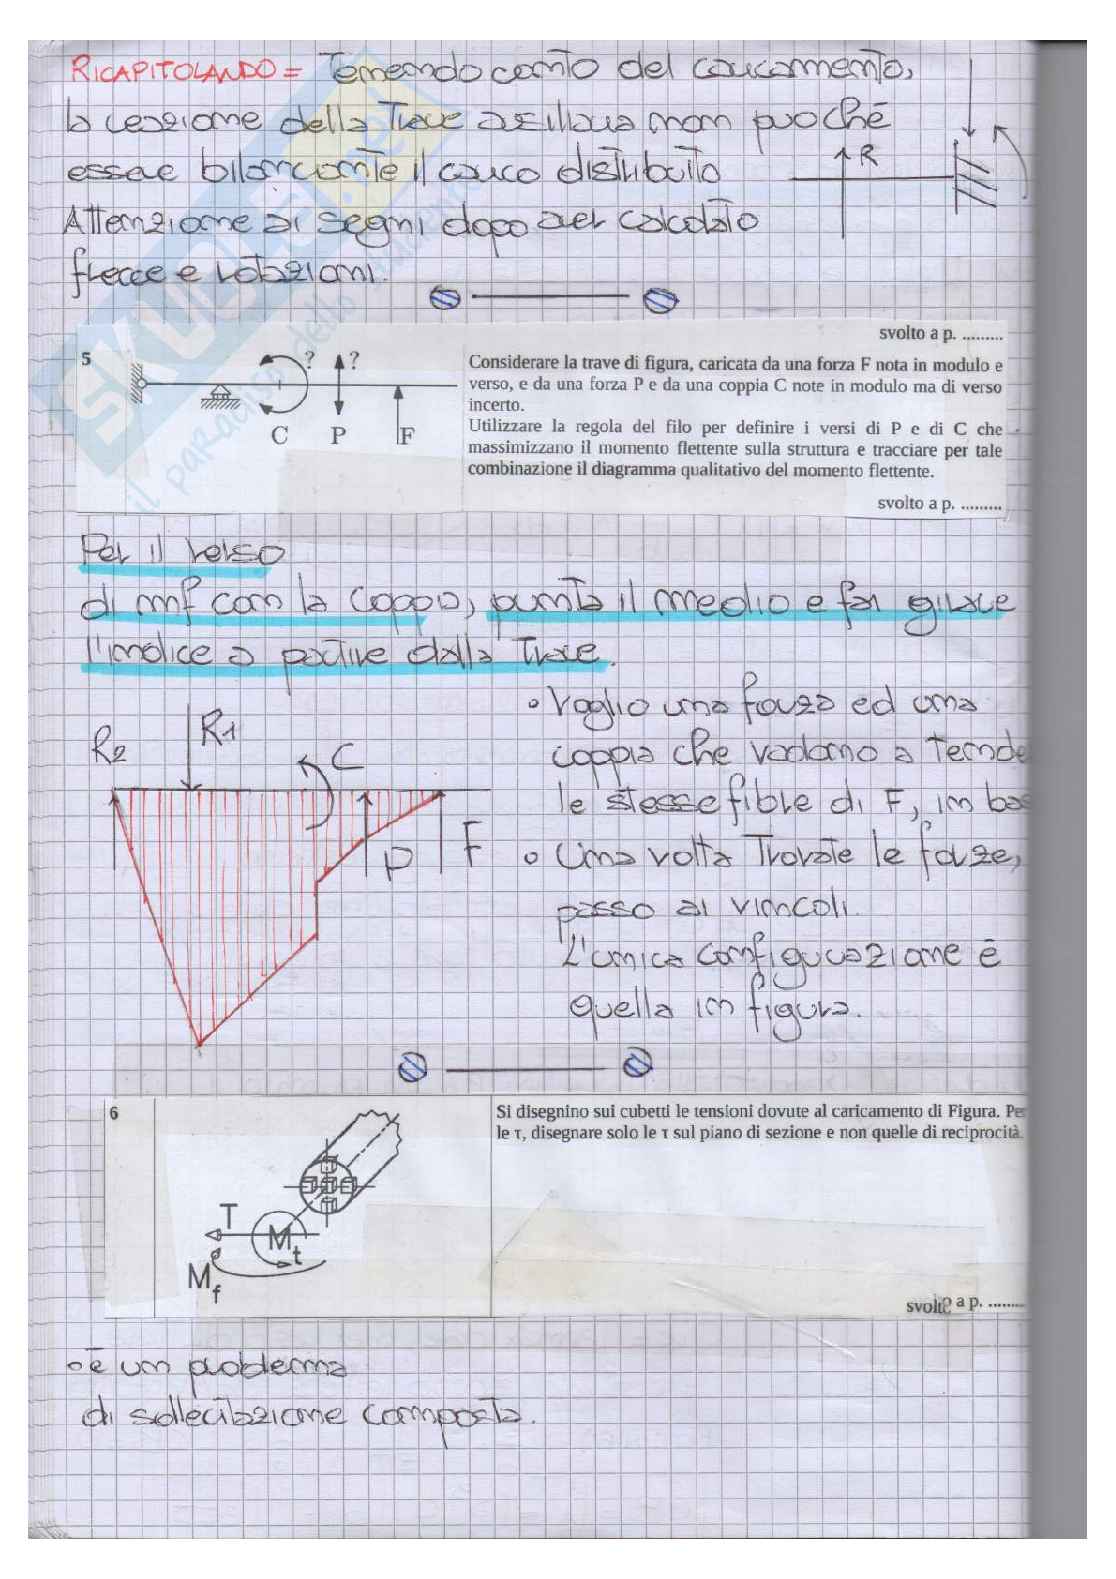 RICAPITOLANDO = Tenendo conto del caricamento,
la reazione della Trave ausiliaria non può che
essere bilanciante il carico distribuito
R
Attenzione ai segni dopo aver calcolato
frecce e rotazioni.
svolto a p. .........
5
? ?
C P F
Considerare la trave di figura, caricata da una forza F nota in modulo e
verso, e da una forza P e da una coppia C note in modulo ma di verso
incerto.
Utilizzare la regola del filo per definire i versi di P e di C che
massimizzano il momento flettente sulla struttura e tracciare per tale
combinazione il diagramma qualitativo del momento flettente.
svolto a p. .........
Per il verso
di mf con la coppia, punta il medio e fai girare
l'indice a partire dalla Trave.
R2 R1 C
P F
• Voglio una forza ed una
coppia che vadano a Tende
le stesse fibre di F, in bas
• Una volta Trovate le forze,
passo ai vincoli.
L'unica configurazione è
quella in figura.
6
T
Mt
Mf
Si disegnino sui cubetti le tensioni dovute al caricamento di Figura. Per
le τ, disegnare solo le τ sul piano di sezione e non quelle di reciprocità.
svolto a p. ........
• è un problema
di sollecitazione composta.
SKUOLA.net
il paradiso dello studente